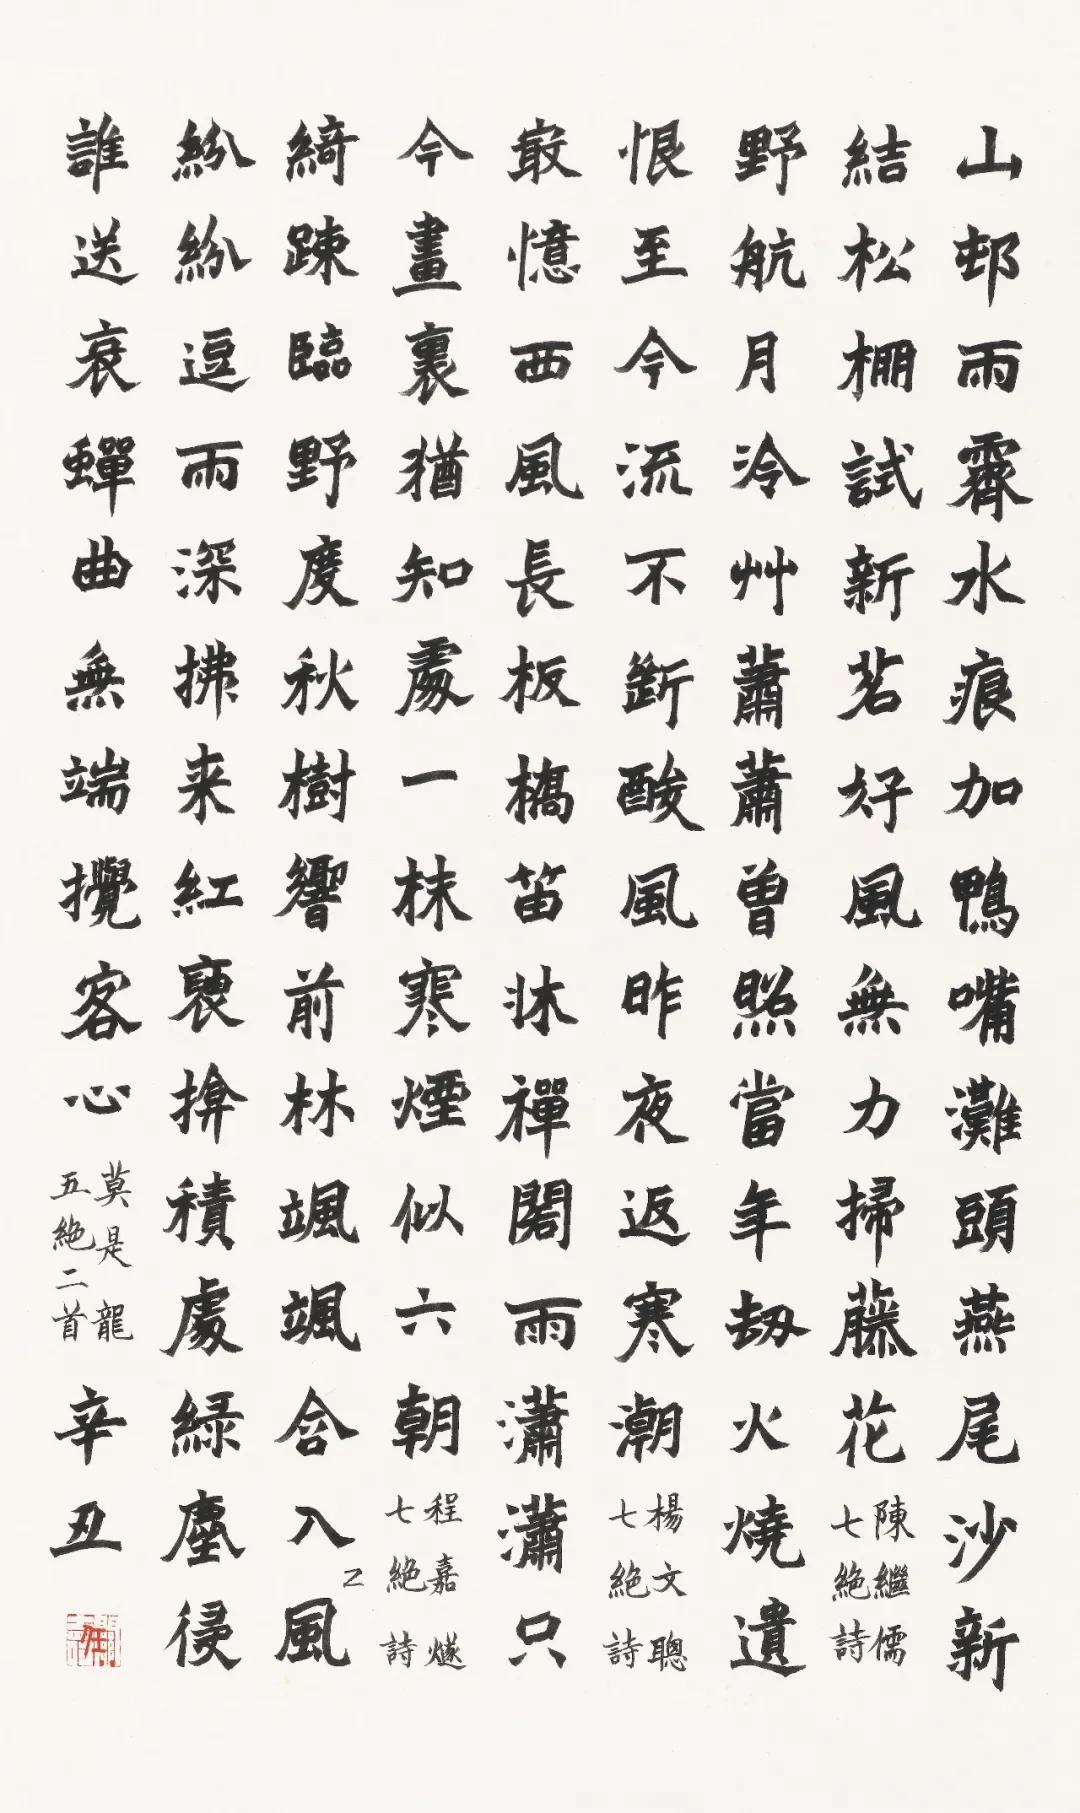 山邨雨霽水痕加鴨嘴灘頭燕尾沙新
結松棚試新茗好風無力掃藤花
陳繼儒
七絶詩
野航月冷艸蕭蕭曾照當年刼火燒遺
恨至今流不斷酸風昨夜返寒潮
楊文聰
七絶詩
㝡憶西風長板橋笛牀禪閣雨瀟瀟只
今畫裏猶知處一抹寒煙似六朝
程嘉燧
七絶詩
綺踈臨野度秋樹響前林颯颯含入乙風
紛紛逗雨深拂来紅裛揜積處緑塵侵
誰送哀蟬曲無端攪客心
莫是龍
五絶二首
辛丑